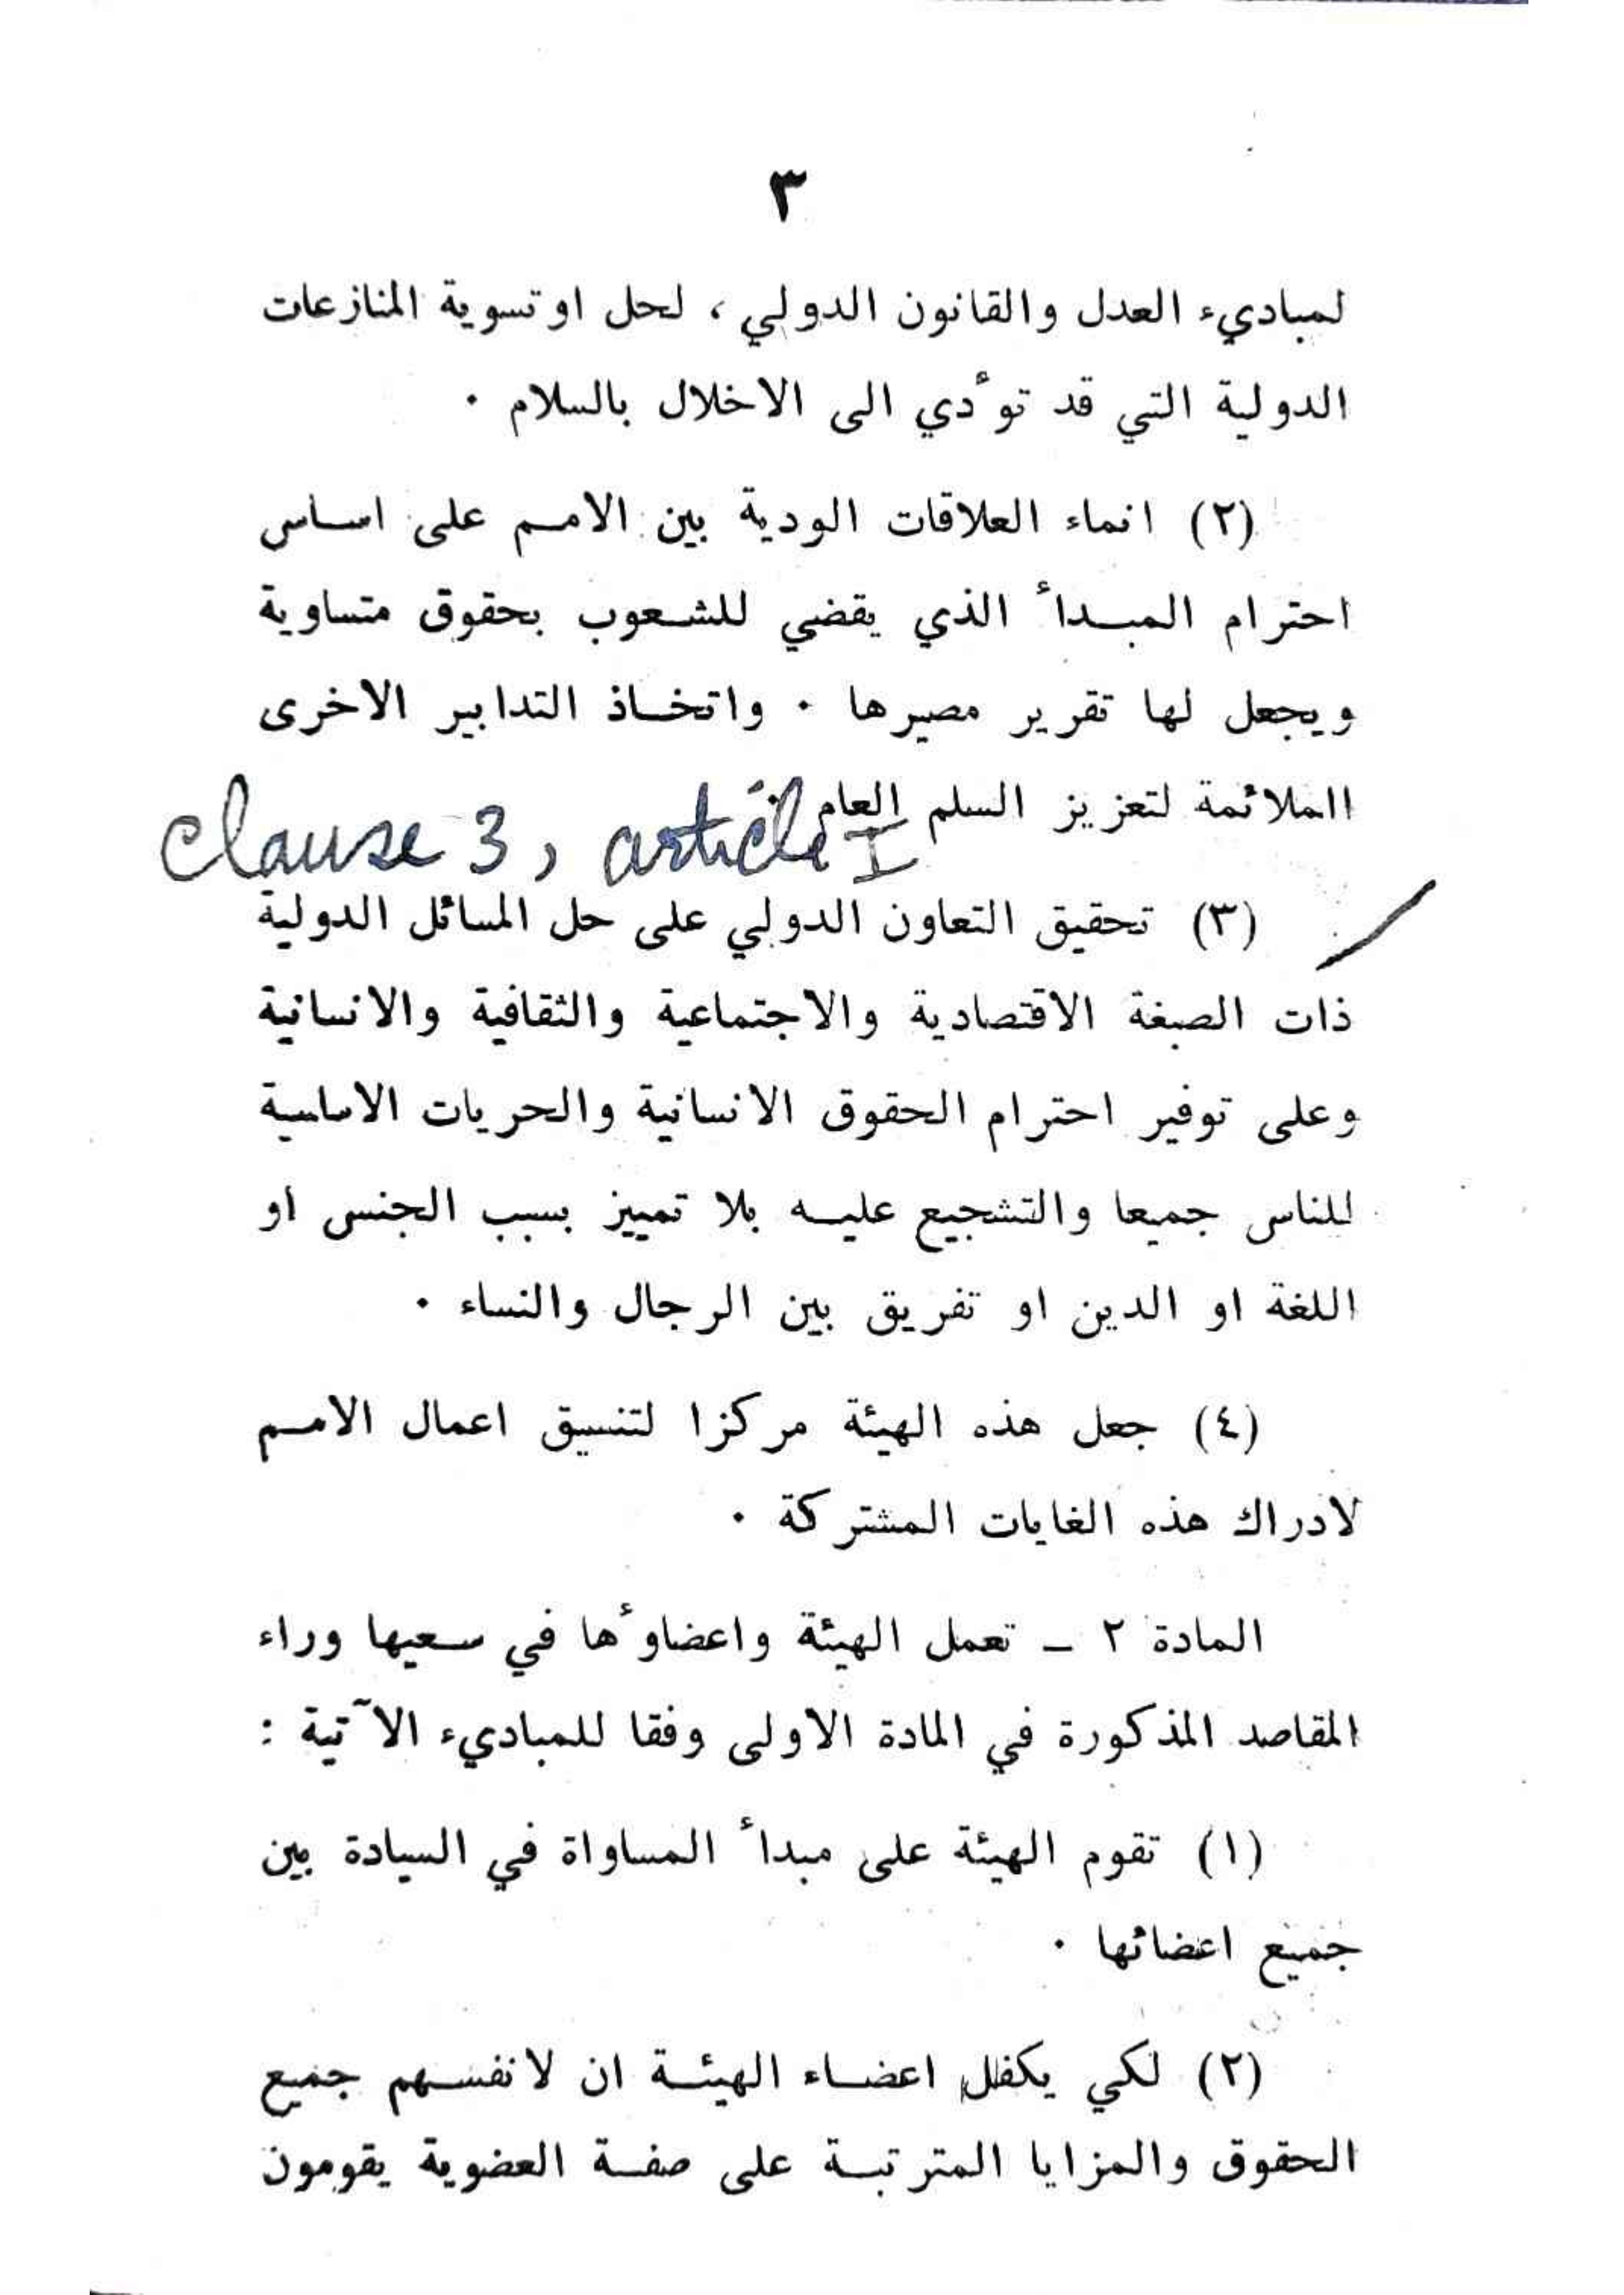 ٣
لمباديء العدل والقانون الدولي ، لحل او تسوية المنازعات
الدولية التي قد تؤدي الى الاخلال بالسلام .
(٢) انماء العلاقات الودية بين الامم على اساس
احترام المبدأ الذي يقضي للشعوب بحقوق متساوية
ويجعل لها تقرير مصيرها . واتخاذ التدابير الاخرى
االملائمة لتعزيز السلم العام .
clause 3, article I
(٣) تحقيق التعاون الدولي على حل المسائل الدولية
ذات الصبغة الاقتصادية والاجتماعية والثقافية والانسانية
وعلى توفير احترام الحقوق الانسانية والحريات الاساسية
للناس جميعا والتشجيع عليه بلا تمييز بسبب الجنس او
اللغة او الدين او تفريق بين الرجال والنساء .
(٤) جعل هذه الهيئة مركزا لتنسيق اعمال الامم
لادراك هذه الغايات المشتركة .
المادة ٢ – تعمل الهيئة واعضاؤها في سعيها وراء
المقاصد المذكورة في المادة الاولى وفقا للمباديء الآتية :
(١) تقوم الهيئة على مبدأ المساواة في السيادة بين
جميع اعضائها .
(٢) لكي يكفل اعضاء الهيئة ان لانفسهم جميع
الحقوق والمزايا المترتبة على صفة العضوية يقومون